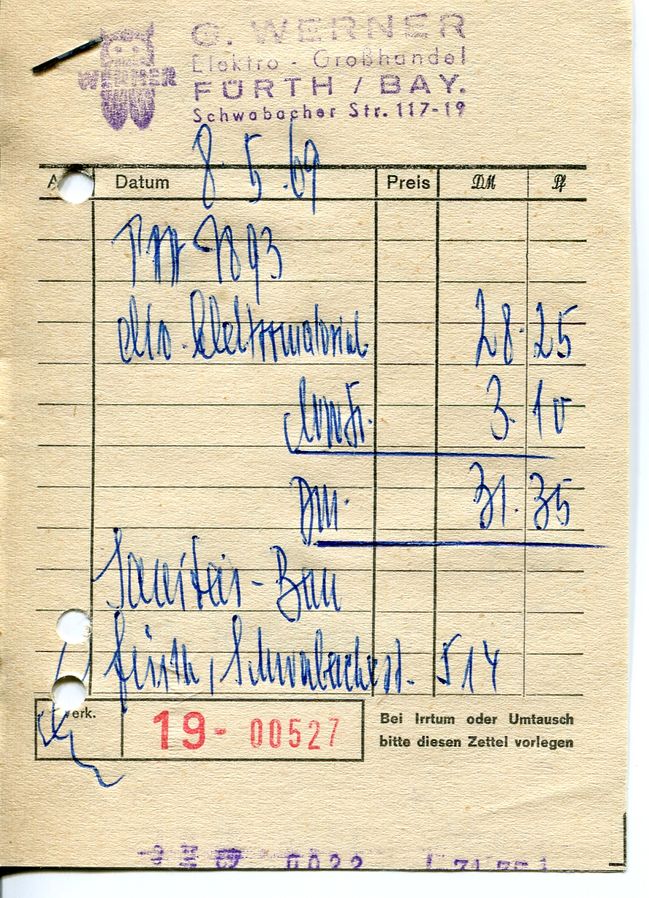 WERNER
G. WERNER
Elektro - Großhandel
FÜRTH / BAY.
Schwabacher Str. 117-19
Datum 8.5.69 Preis DM Pf
7893
Elektromaterial 28.25
Mwst. 3.10
DM. 31.35
Sanitär-Bau
Fürth, Schwabacherst. 514
Verk.
19- 00527
Bei Irrtum oder Umtausch
bitte diesen Zettel vorlegen
0022